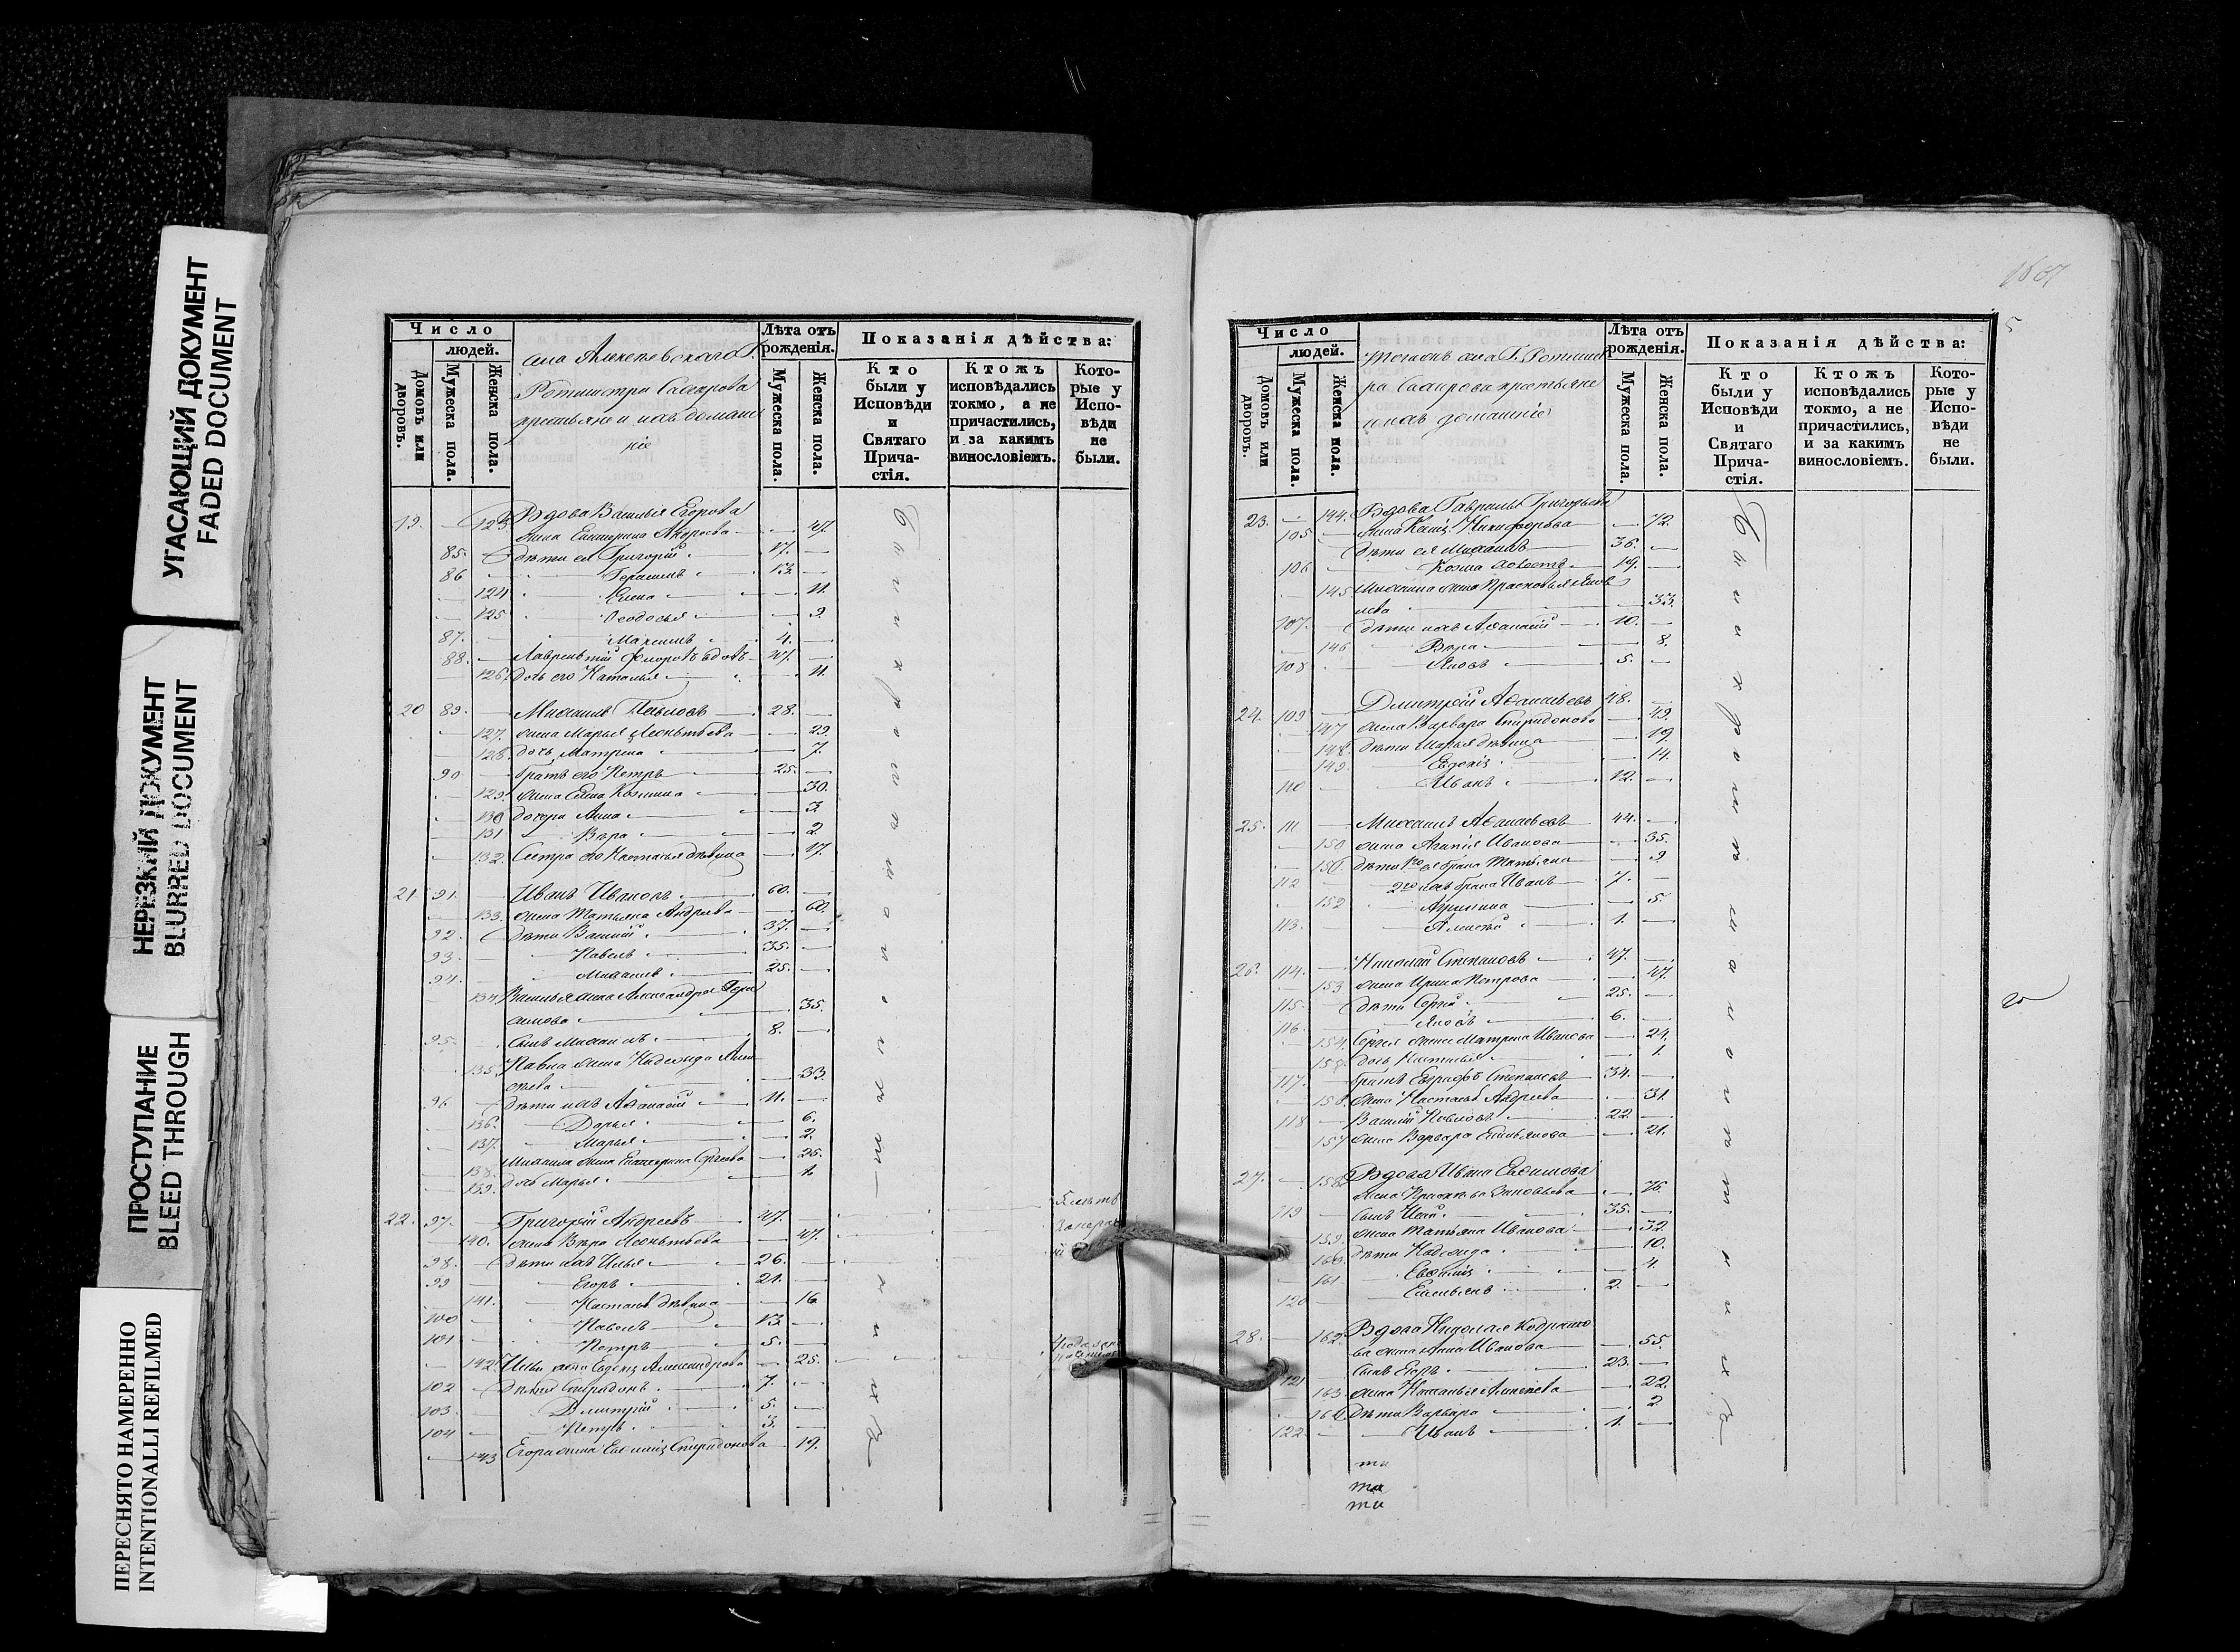 УГАСАЮЩИЙ ДОКУМЕНТ
FADED DOCUMENT
НЕРЕЗКИЙ ДОКУМЕНТ
BLURRED DOCUMENT
ПРОСТУПАНИЕ
BLEED THROUGH
ПЕРЕСНЯТО НАМЕРЕННО
INTENTIONALLI REFILMED
Число
людей.
Домовъ или дворовъ.
Мужеска пола.
Женска пола.
Ротмистра
крестьяне и ихъ домаш
ніе
Лѣта отъ рожденія.
Мужеска пола.
Женска пола.
Показанія дѣйства:
Кто были у Исповѣди и Святаго Прича-стія.
Ктожъ исповѣдались токмо, а не причастились, и за какимъ винословіемъ.
Кото-рые у Испо-вѣди не были.
19. 123 Вдова Василья Егорова
жена Екатерина Андреева 47.
85. дѣти ея Григорій 17.
86 Герасимъ 13.
124 Елена 11.
125 Ѳеодосья 9.
87. Максимъ 4.
88. Лаврентій Флоровъ вдовъ 47.
126 дочь его Наталья 11.
20 89. Михаилъ Павловъ 28.
127. жена Марья Леонтьева 29
128. дочь Матрена 7.
90 братъ его Петръ 25.
129. жена Елена Козмина 30.
130 дочери Анна 3.
131 Вѣра 2.
132. Сестра его Настасья дѣвица 17.
21 91. Иванъ Ивановъ 60.
133. жена Татьяна Андреева 60.
92. дѣти Василій 37.
93. Павелъ 35.
94. Михаилъ 25.
134 Василья жена Александра Гера
симова 35.
95. сынъ Михаилъ 8.
135 Павла жена Надежда Алек
сѣева 33.
96 дѣти ихъ Аѳанасій 11.
136. Дарья 6.
137. Марья 2.
138. Михаила жена Екатерина Сергеева 25.
139. дочь Марья 1.
22. 97. Григорій Андреевъ 47.
140. жена Вѣра Леонтьева 47.
98. дѣти ихъ Илья 26.
99 Егоръ 21.
141. Настасья дѣвица 16
100 Павелъ 13.
101 Петръ 5.
142 Ильи жена Евдокія Александрова 25.
102 дѣти Спиридонъ 7.
103. Дмитрій 5.
104 Петръ 3.
143 Егора жена Евѳимія Спиридонова 19.
Число
людей.
Домовъ или дворовъ.
Мужеска пола.
Женска пола.
ра крестьяне
и ихъ домашніе
Лѣта отъ рожденія.
Мужеска пола.
Женска пола.
Показанія дѣйства:
Кто были у Исповѣди и Святаго Прича-стія.
Ктожъ исповѣдались токмо, а не причастились, и за какимъ винословіемъ.
Кото-рые у Испо-вѣди не были.
23. 144. Вдова Гаврилы Григорьева
жена Никифорова 72.
105 дѣти ея Михаилъ 36.
106 Козма холостъ 19.
145 Михаила жена Прасковья Яков
лева 33.
107. дѣти ихъ Аѳанасій 10.
146 Вѣра 8.
108 Яковъ 5.
24. 109 Дмитрій Аѳанасьевъ 48.
147 жена Варвара Спиридонова 49.
148. дѣти Марья дѣвица 19
149. Евдокія 14.
110 Иванъ 12.
25. 111 Михаилъ Аѳанасьевъ 44.
150 жена Агапія Иванова 35.
дѣти 1го ея брака Татьяна 9
112 2го ихъ брака Иванъ 7.
152 Агрипина 5
113. Алексѣй 1.
26. 114. Николай Степановъ 47.
153 жена Ирина Петрова 47.
115. дѣти Сергій 25.
116. Яковъ 6.
154. Сергея жена Матрена Иванова 24.
дочь Настасья 1.
117. братъ Евграфъ Степановъ 34.
жена Настасья Андреева 31.
118 Василій Павловъ 22
157 жена Варвара Емельянова 21.
27. 158 Вдова Ивана Евѳимова
жена Прасковья Зиновьева 76
119 сынъ Исай 35.
159. жена Татьяна Иванова 32.
160. дѣти Надежда 10.
161 Евѳимія 4.
120 Емельянъ 2.
28. 162 Вдова Николая Кодрато
ва жена Анна Иванова 55.
121 сынъ Егоръ 23.
163. жена Наталья Алексѣева 22.
164 дѣти Варвара 2
122. Иванъ 1.